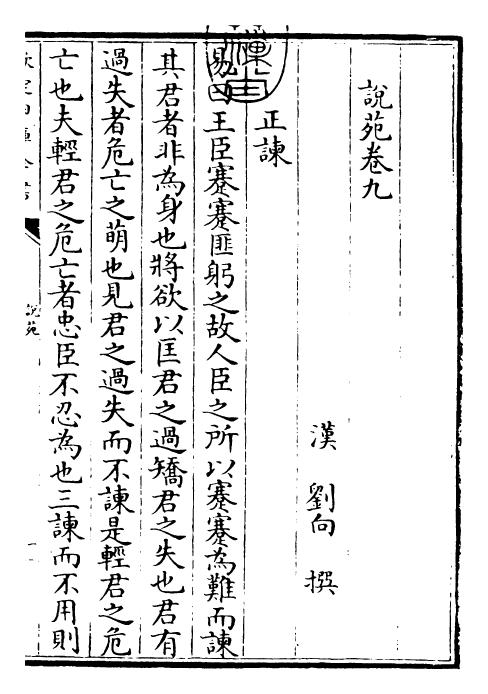 說苑卷九
漢 劉向 撰
正諫
易曰王臣蹇蹇匪躬之故人臣之所以蹇蹇為難而諫
其君者非為身也將欲以匡君之過矯君之失也君有
過失者危亡之萌也見君之過失而不諫是輕君之危
亡也夫輕君之危亡者忠臣不忍為也三諫而不用則
說苑
一